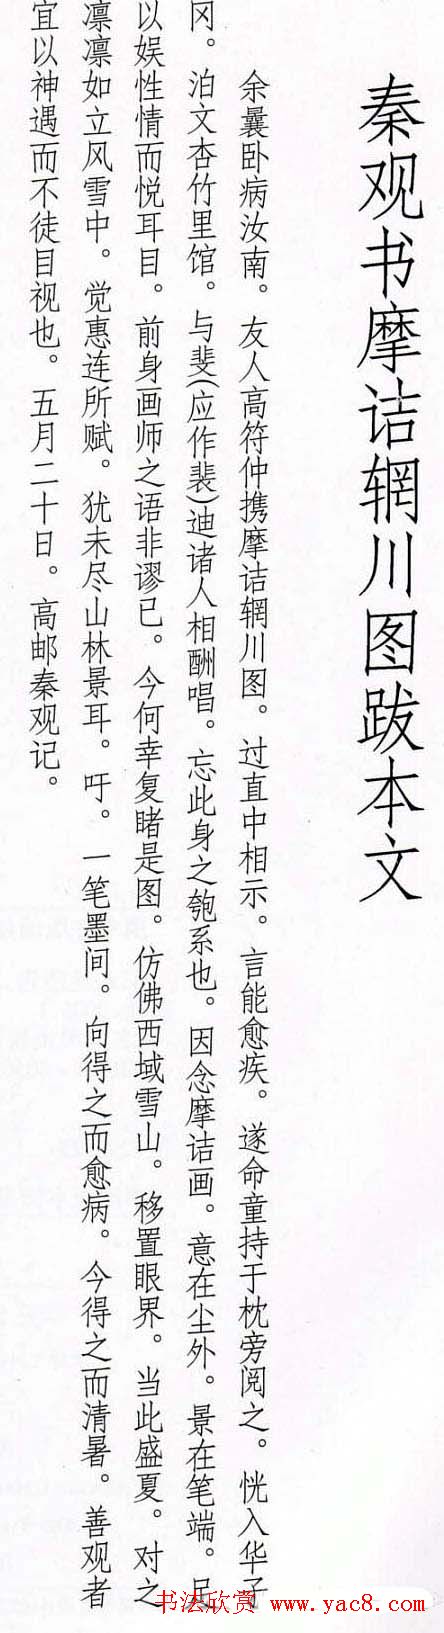 秦观书摩诘辋川图跋本文
余曩卧病汝南。友人高符仲携摩诘辋川图。过直中相示。言能愈疾。遂命童持于枕旁阅之。恍入华子
冈。泊文杏竹里馆。与斐(应作裴)迪诸人相酬唱。忘此身之匏系也。因念摩诘画。意在尘外。景在笔端。足
以娱性情而悦耳目。前身画师之语非谬已。今何幸复睹是图。仿佛西域雪山。移置眼界。当此盛夏。对之
凛凛如立风雪中。觉惠连所赋。犹未尽山林景耳。吁。一笔墨间。向得之而愈病。今得之而清暑。善观者
宜以神遇而不徒目视也。五月二十日。高邮秦观记。
书法欣赏 www.yac8.com